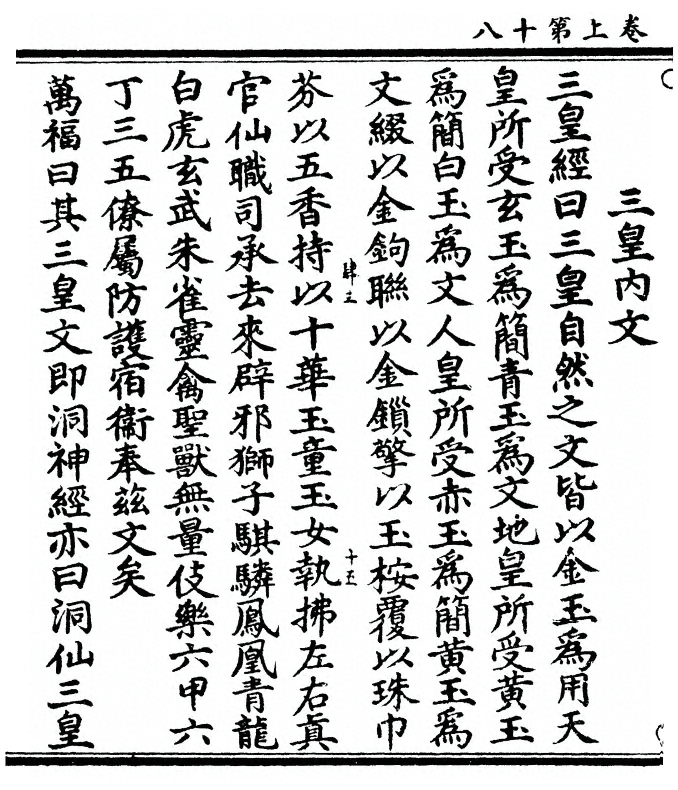 卷上第十八
三皇内文
三皇經曰三皇自然之文皆以金玉爲用天
皇所受玄玉爲簡青玉爲文地皇所受黃玉
爲簡白玉爲文人皇所受赤玉爲簡黃玉爲
文綴以金鉤聯以金鎖擎以玉桉覆以珠巾
芬以五香持以十華玉童玉女執拂左右眞
肆三
十五
官仙職司承去來辟邪獅子騏驎鳳凰青龍
白虎玄武朱雀靈禽聖獸無量伎樂六甲六
丁三五僚屬防護宿衞奉茲文矣
萬福曰其三皇文即洞神經亦曰洞仙三皇